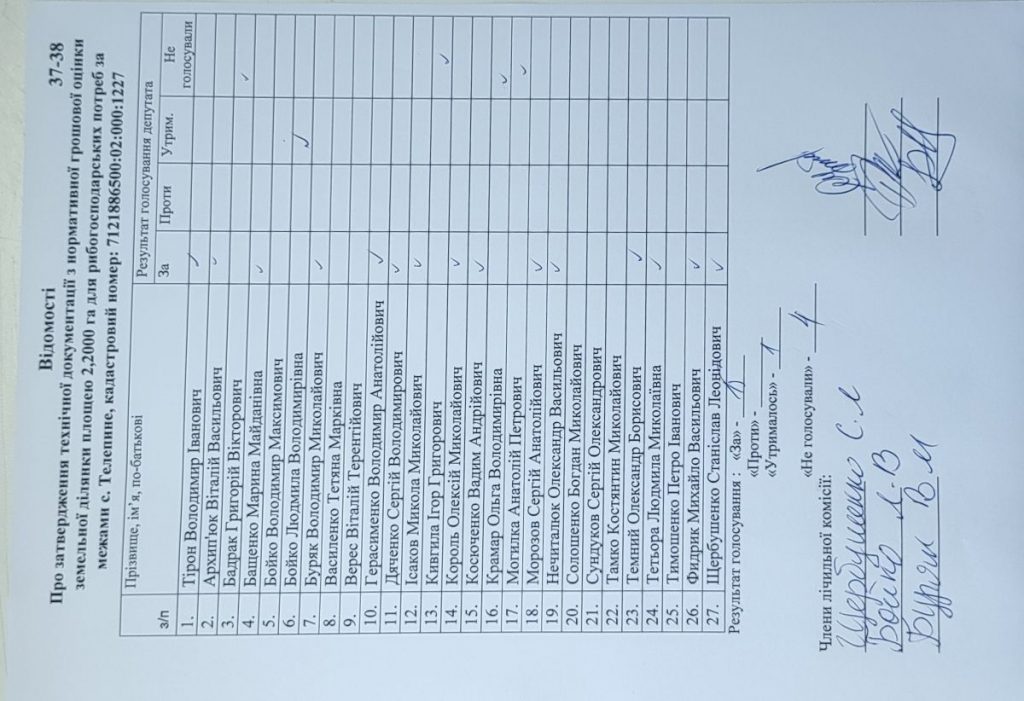 Відомості 37-38
Про затвердження технічної документації з нормативної грошової оцінки
земельної ділянки площею 2,2000 га для рибогосподарських потреб за
межами с. Телепине, кадастровий номер: 7121886500:02:000:1227
з/п Прізвище, ім'я, по-батькові Результат голосування депутата
За Проти Утрим. Не голосували
1. Тірон Володимир Іванович
2. Архип'юк Віталій Васильович
3. Бадрак Григорій Вікторович
4. Бащенко Марина Майданівна
5. Бойко Володимир Максимович
6. Бойко Людмила Володимирівна
7. Буряк Володимир Миколайович
8. Василенко Тетяна Марківна
9. Верес Віталій Терентійович
10. Герасименко Володимир Анатолійович
11. Дяченко Сергій Володимирович
12. Ісаков Микола Миколайович
13. Кивгила Ігор Григорович
14. Король Олексій Миколайович
15. Косюченко Вадим Андрійович
16. Крамар Ольга Володимирівна
17. Могилка Анатолій Петрович
18. Морозов Сергій Анатолійович
19. Нечиталюк Олександр Васильович
20. Солошенко Богдан Миколайович
21. Сундуков Сергій Олександрович
22. Тамко Костянтин Миколайович
23. Темний Олександр Борисович
24. Тетьора Людмила Миколаївна
25. Тимошенко Петро Іванович
26. Фидрик Михайло Васильович
27. Щербушенко Станіслав Леонідович
Результат голосування : «За» -
«Проти» -
«Утрималось» - 1
«Не голосували» - 4
Члени лічильної комісії:
Щербушенко С. Л
Бойко Л. В
Буряк В. М